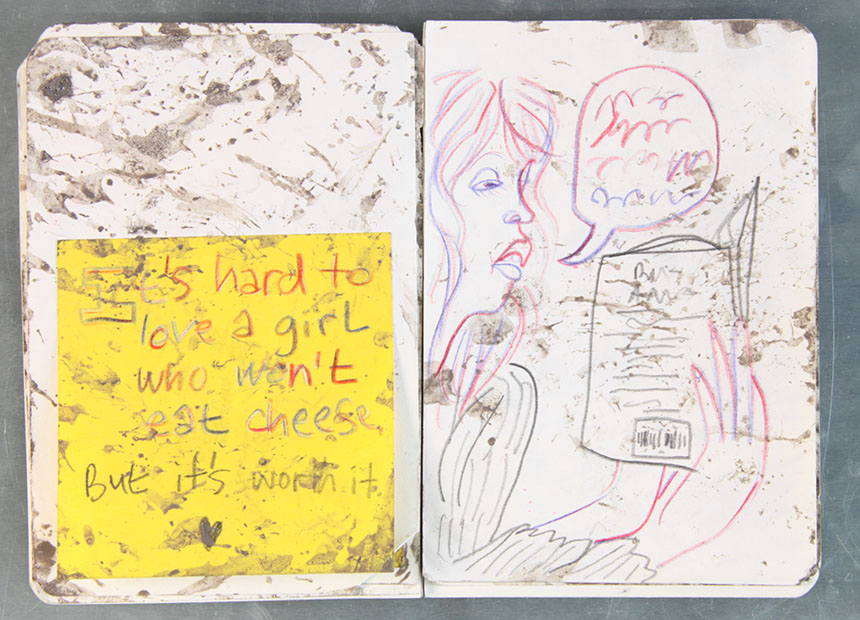 It's hard to
love a girl
who won't
eat cheese.
But it's worth it.